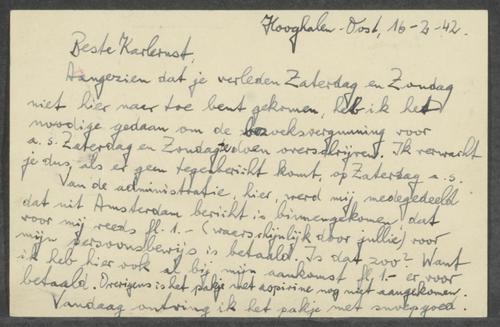 Hooghalen-Oost, 16-2-42.
Beste Karlernst,
Aangezien dat je verleden Zaterdag en Zondag
niet hier naer toe bent gekomen, heb ik het
noodige gedaan om de bezoeksvergunning voor
a.s. Zaterdag en Zondag te doen overschrijven. Ik verwacht
je dus, als er geen tegenbericht komt, op Zaterdag a.s.
Van de administratie, hier, werd mij medegedeeld
dat uit Amsterdam bericht is binnengekomen, dat
voor mij reeds fl. 1.- (waerschijnlijk door jullie) voor
mijn persoonsbewijs is betaald. Is dat zoo? Want
ik heb hier ook al bij mijn aankomst fl. 1.- er voor
betaald. Overigens is het pakje met aspirine nog niet aangekomen.
Vandaag ontving ik het pakje met snoepgoed.